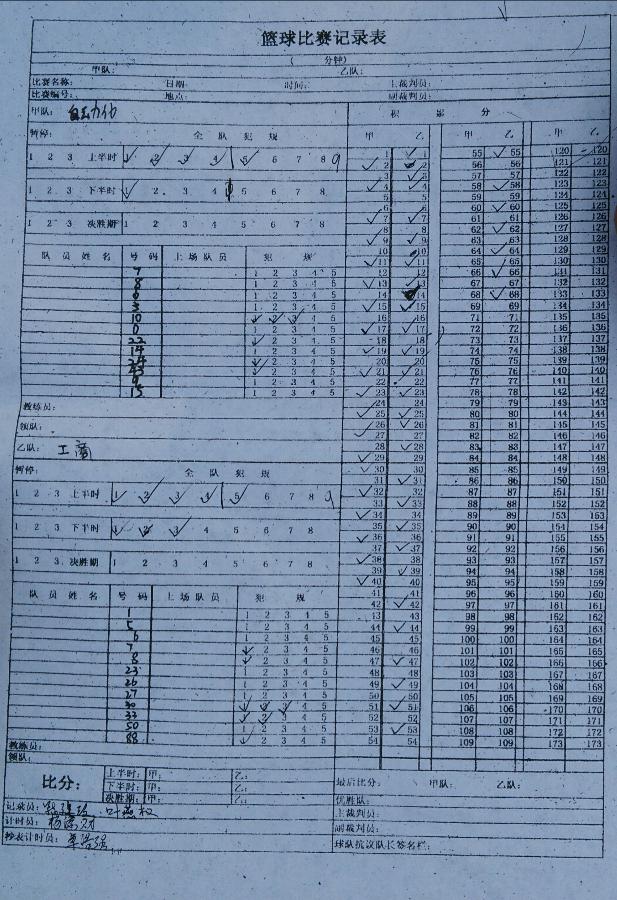 篮球比赛记录表
( 分钟)
甲队: 乙队:
比赛名称: 日期: 时间: 上裁判员:
比赛编号: 地点: 副裁判员:
甲队:
积 累 分
暂停: 全 队 犯 规
甲 乙 甲 乙 甲 乙
1 2 3 上半时 1 2 3 4 5 6 7 8 9
1 2 3 下半时 1 2 3 4 5 6 7 8
1 2 3 决胜期 1 2 3 4 5 6 7 8
队 员 姓 名 号 码 上 场 队 员 犯 规
7 1 2 3 4 5
8 1 2 3 4 5
1 2 3 4 5
3 1 2 3 4 5
10 1 2 3 4 5
0 1 2 3 4 5
22 1 2 3 4 5
14 1 2 3 4 5
1 2 3 4 5
1 2 3 4 5
9 1 2 3 4 5
15 1 2 3 4 5
教练员:
领队:
乙队: 工商
暂停: 全 队 犯 规
1 2 3 上半时 1 2 3 4 5 6 7 8 9
1 2 3 下半时 1 2 3 4 5 6 7 8
1 2 3 决胜期 1 2 3 4 5 6 7 8
队 员 姓 名 号 码 上 场 队 员 犯 规
1 1 2 3 4 5
5 1 2 3 4 5
6 1 2 3 4 5
7 1 2 3 4 5
8 1 2 3 4 5
23 1 2 3 4 5
26 1 2 3 4 5
27 1 2 3 4 5
30 1 2 3 4 5
33 1 2 3 4 5
50 1 2 3 4 5
88 1 2 3 4 5
教练员:
领队:
1 1 55 55 120 120
2 2 56 56 121 121
3 3 57 57 122 122
4 4 58 58 123 123
5 5 59 59 124 124
6 6 60 60 125 125
7 7 61 61 126 126
8 8 62 62 127 127
9 9 63 63 128 128
10 10 64 64 129 129
11 11 65 65 130 130
12 12 66 66 131 131
13 13 67 67 132 132
14 14 68 68 133 133
15 15 69 69 134 134
16 16 71 71 135 135
17 17 72 72 136 136
18 18 73 73 137 137
19 19 74 74 138 138
20 20 75 75 139 139
21 21 76 76 140 140
22 22 77 77 141 141
23 23 78 78 142 142
24 24 79 79 143 143
25 25 80 80 144 144
26 26 81 81 145 145
27 27 82 82 146 146
28 28 83 83 147 147
29 29 84 84 148 148
30 30 85 85 149 149
31 31 86 86 150 150
32 32 87 87 151 151
33 33 88 88 152 152
34 34 89 89 153 153
35 35 90 90 154 154
36 36 91 91 155 155
37 37 92 92 156 156
38 38 93 93 157 157
39 39 94 94 158 158
40 40 95 95 159 159
41 41 96 96 160 160
42 42 97 97 161 161
43 43 98 98 162 162
44 44 99 99 163 163
45 45 100 100 164 164
46 46 101 101 165 165
47 47 102 102 166 166
48 48 103 103 167 167
49 49 104 104 168 168
50 50 105 105 169 169
51 51 106 106 170 170
52 52 107 107 171 171
53 53 108 108 172 172
54 54 109 109 173 173
比分: 上半时: 甲: 乙:
下半时: 甲: 乙:
决胜期: 甲: 乙:
最后比分: 甲队: 乙队:
优胜队:
记录员:
上裁判员:
计时员:
副裁判员:
秒表计时员:
球队抗议队长签名栏: